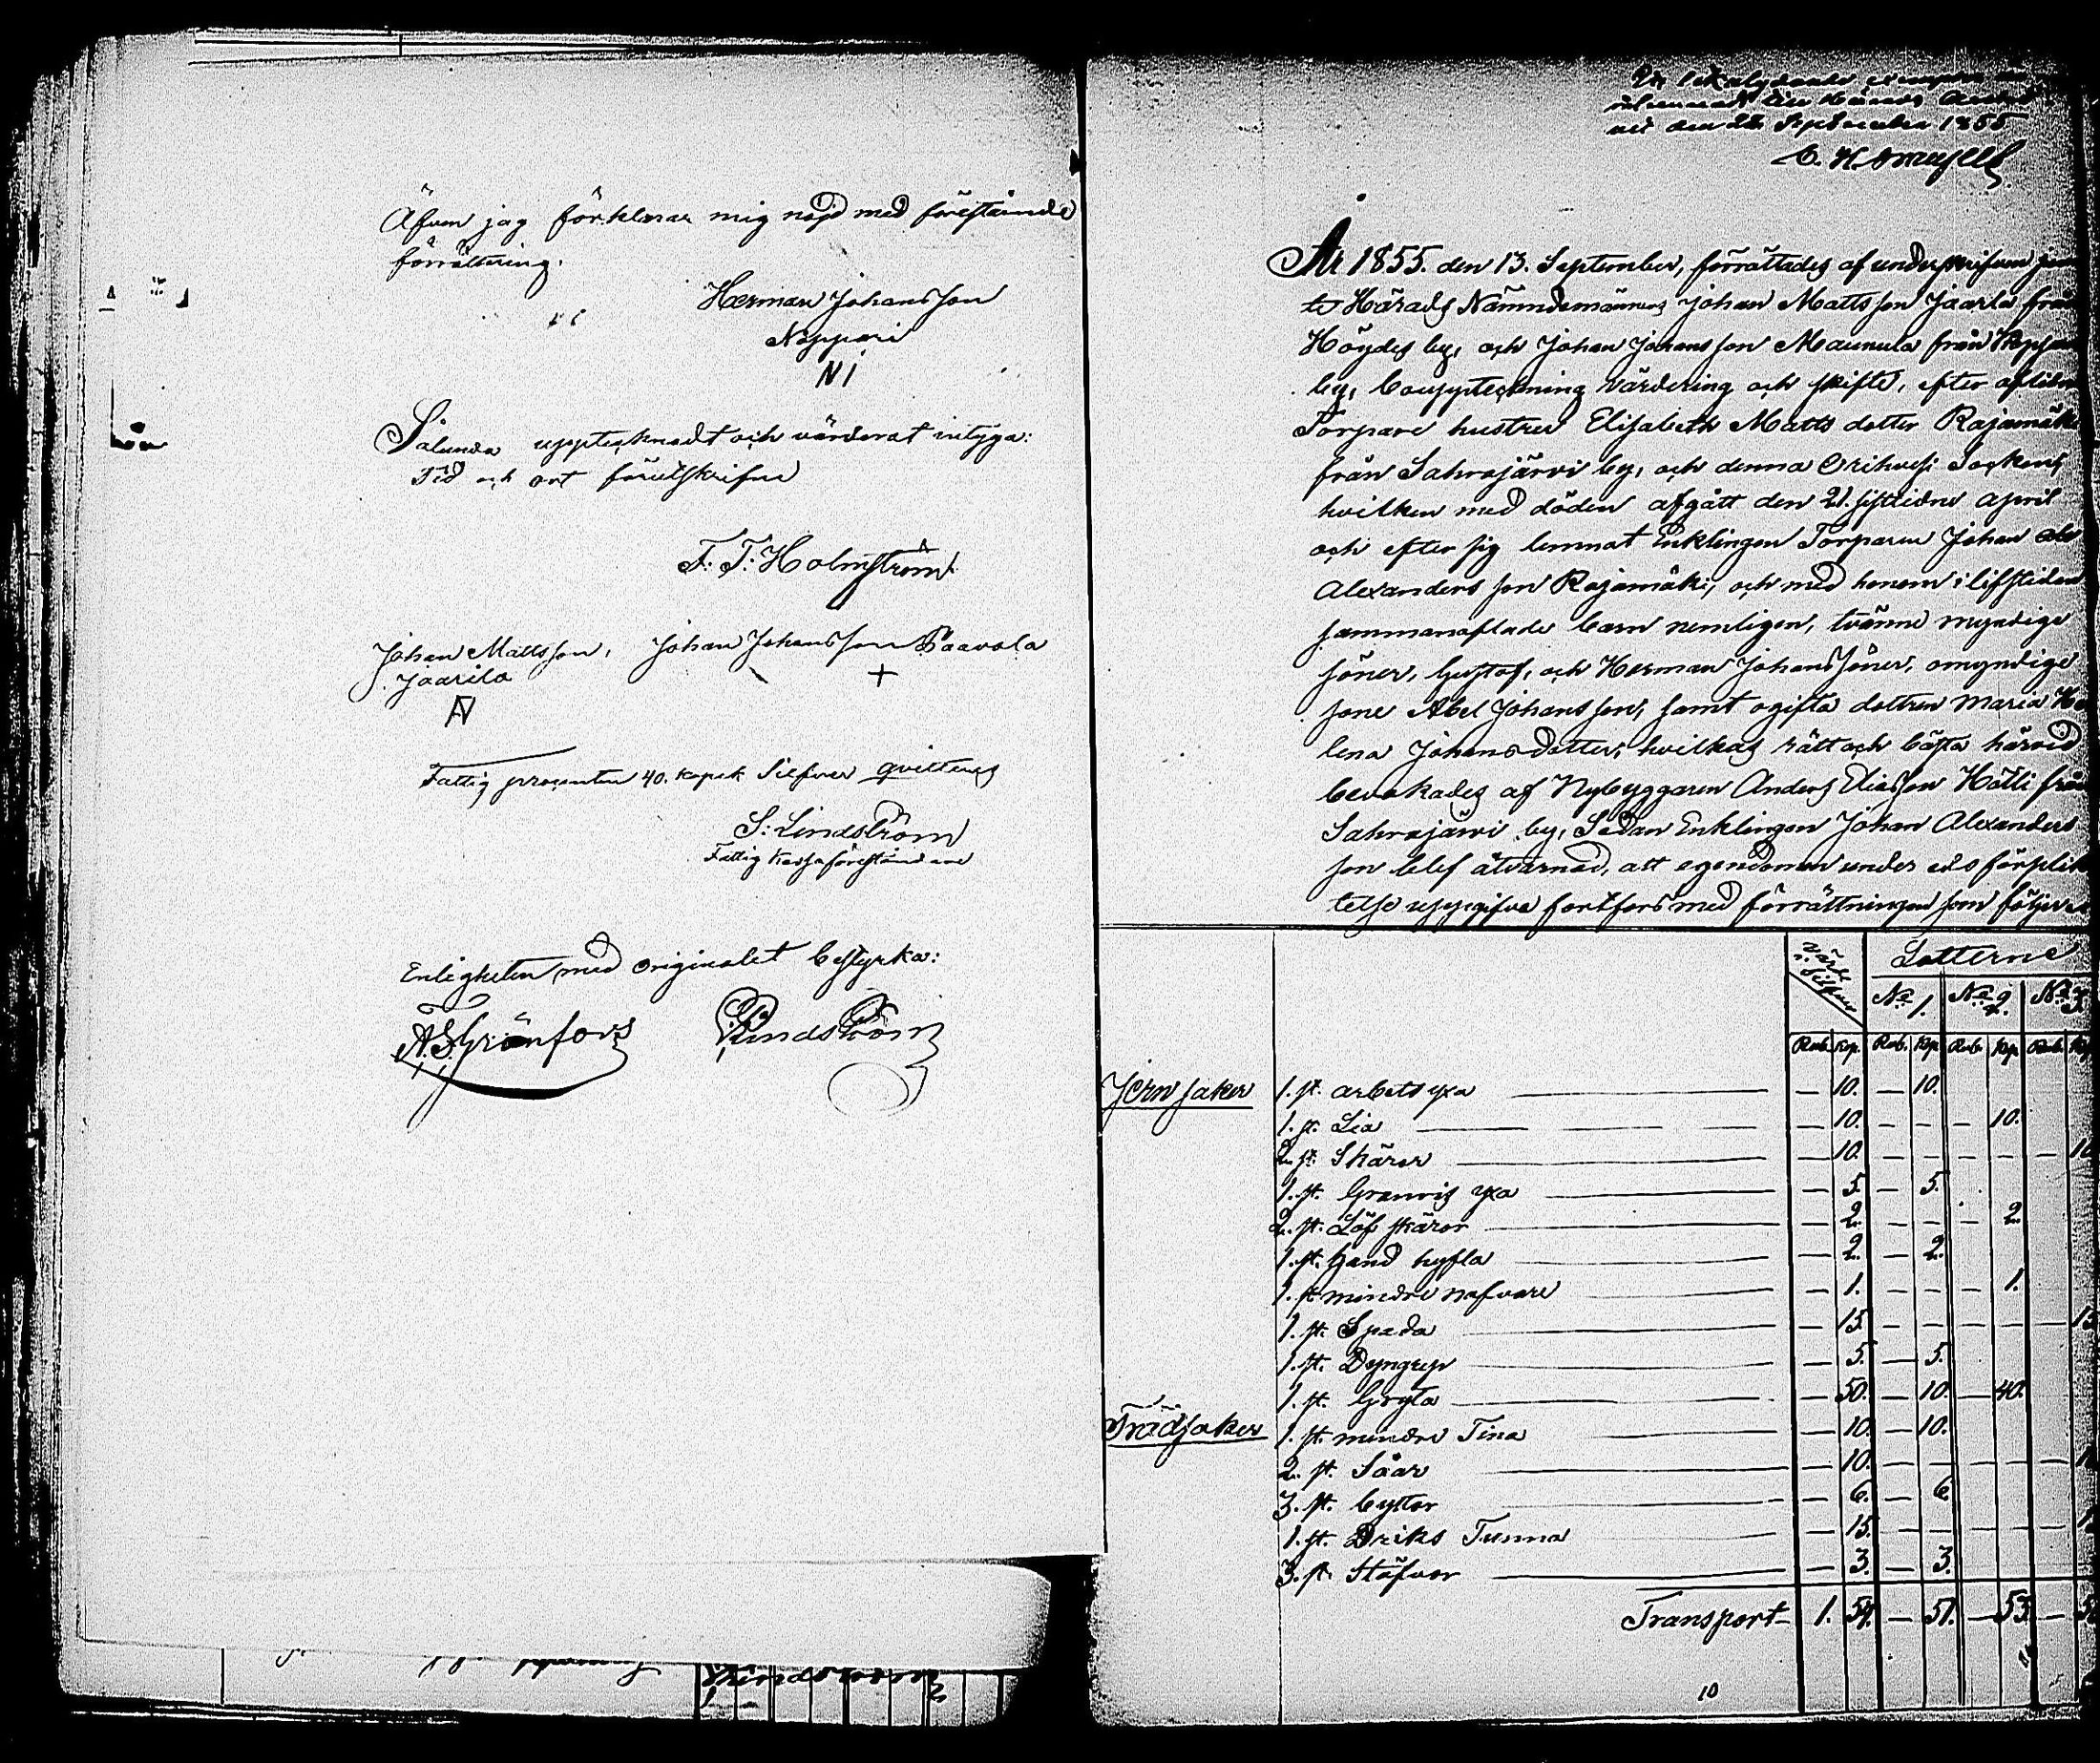 Äfven jag förklarar mig nöjd med förestående
förrättning.
Herman Johansson
Neppari
N I
Sålunda uppteknadt och värderat intyga:
Tid och ort förutskrifne
F. F. Holmström
Johan Mattsson, Johan Johansson Paavola
Jaarila
+
Fattig procenten 40. kopek Silfver qvitteras
S: Lindström
Fattig Kassaföreståndare
Enligheten med originalet bestyrka:
A. S. Grönfors Lindström
den September 1855
År 1855. den 13. September, förrättades af underskrifven jem
te Härads Nämndemännerne Johan Mattsson Jaarila från
by, och Johan Johansson Maunula från
by, Bouppteckning värdering och skifte, efter aflidne
Torpare hustru Elisabeth Matts dotter Rajamäki
från Sahrajärvi by, och denna Orihvesi Socken,
hvilken med döden afgått den 21. sistledne April
och efter sig lemnat Enklingen Torparen Johan
Alexanders son Rajamäki, och med honom i lifstiden
sammanaflade barn nemligen, tvänne myndige
söner, Gustaf, och Herman Johans söner, omyndige
sone Abel Johansson, samt ogifta dottren Maria He
lena Johansdotter, hvilkas rätt och bästa härvid
bevakades af Nybyggaren Anders Eliasson Hötti från
Sahrajärvi by, Sedan Enklingen Johan Alexanders
son blef åtvarnad, att egendomen under eds förplik
telse uppgifva fortfors med förrättningen som följer
Värde Silfver Lotterne
No 1. No 2. No 3.
Rub. Kp. Rub. Kp. Rub. Kp. Rub. Kp.
Jern saker 1. st. arbets yxa — 10. — 10.
1. st. Lia — 10. — — — 10.
2. st. Skäror — 10. — — — — — 10
1. st. Granris yxa — 5. — 5.
2. st. Löf skäror — 2. — — — 2.
1. st. hand hyfla — 2. — 2.
1. st. mindre nafvare — 1. — — — 1.
1. st. Spada — 15. — — — — — 15
1. st. Dyngrep — 5. — 5.
1. st. Gryta — 50. — 10. — 40.
Trädsaker 1. st. mindre Tina — 10. — 10.
2. st. Såar — 10. — — — — —
3. st. byttor — 6. — 6.
1. st. Driks Tunna — 15. — — — — —
3. st. Stäfvor — 3. — 3.
Transport 1. 54. — 51. — 53. —
10